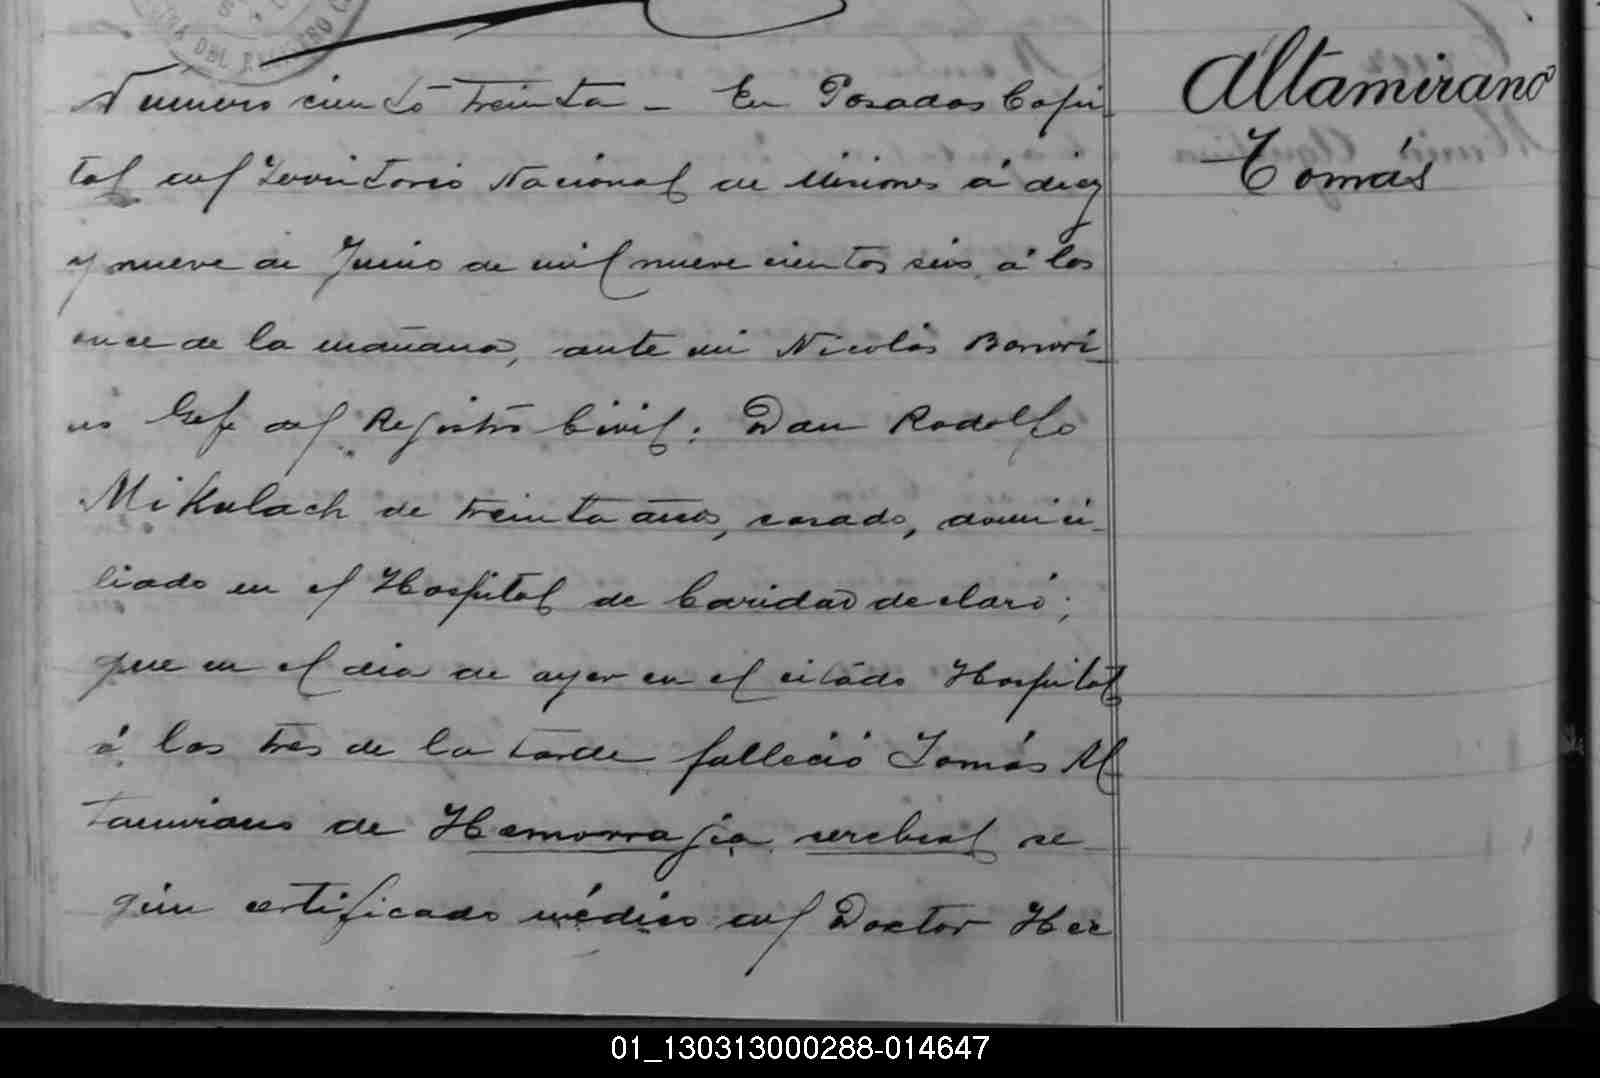 Número ciento treinta - En Posadas Capi
tal del Territorio Nacional de Misiones á diez
y nueve de Junio de mil nueve cientos seis á las
once de la mañana, ante mi Nicolás
Gefe del Registro Civil: Don Rodolfo
Mikulach de treinta años, casado, domici-
liado en el Hospital de Caridad declaró;
que en el dia de ayer en el citado Hospital
á las tres de la tarde falleció Tomás Al
tamirano de Hemorragia cerebral se
gún certificado médico del Doctor Her
Altamirano
Tomás
01_130313000288-014647